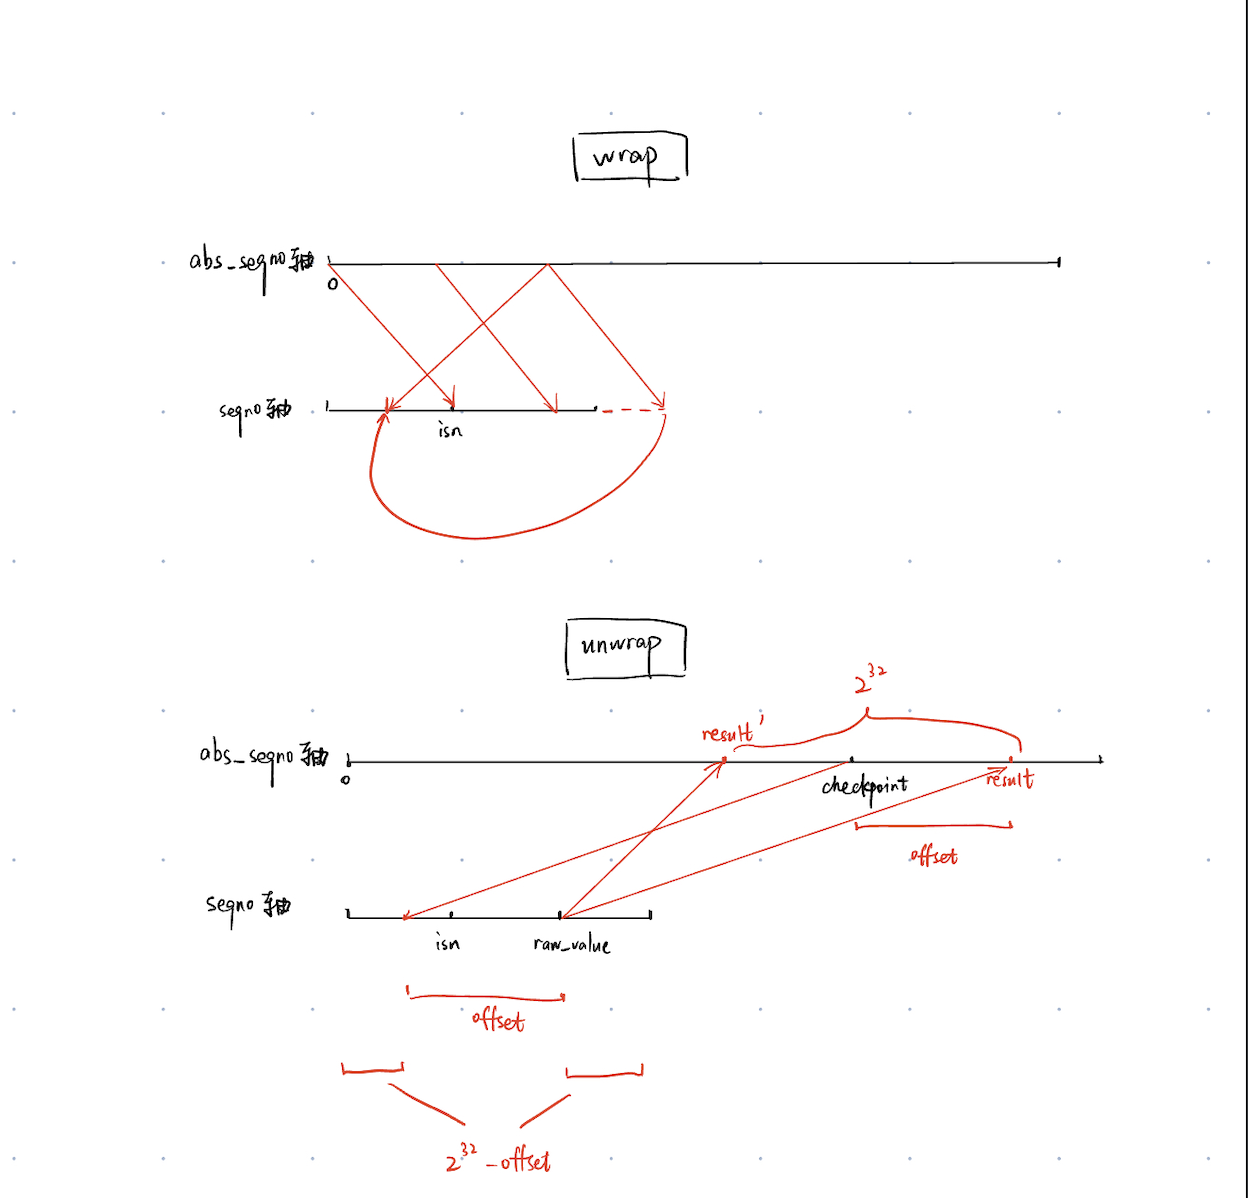 wrap
abs_seqno 轴
0
seqno 轴
isn
unwrap
2^32
result'
abs_seqno 轴
0
checkpoint
result
offset
seqno 轴
isn
raw_value
offset
2^32 - offset